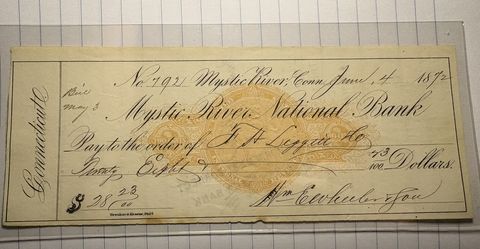 Connecticut
No. 792 Mystic River, Conn. June 4 1872
Bill
May 3
Mystic River National Bank
Pay to the order of F H Leggett & Co
Twenty Eight & 23/100 Dollars.
$ 28 23/00 Wm E Wheeler & Son